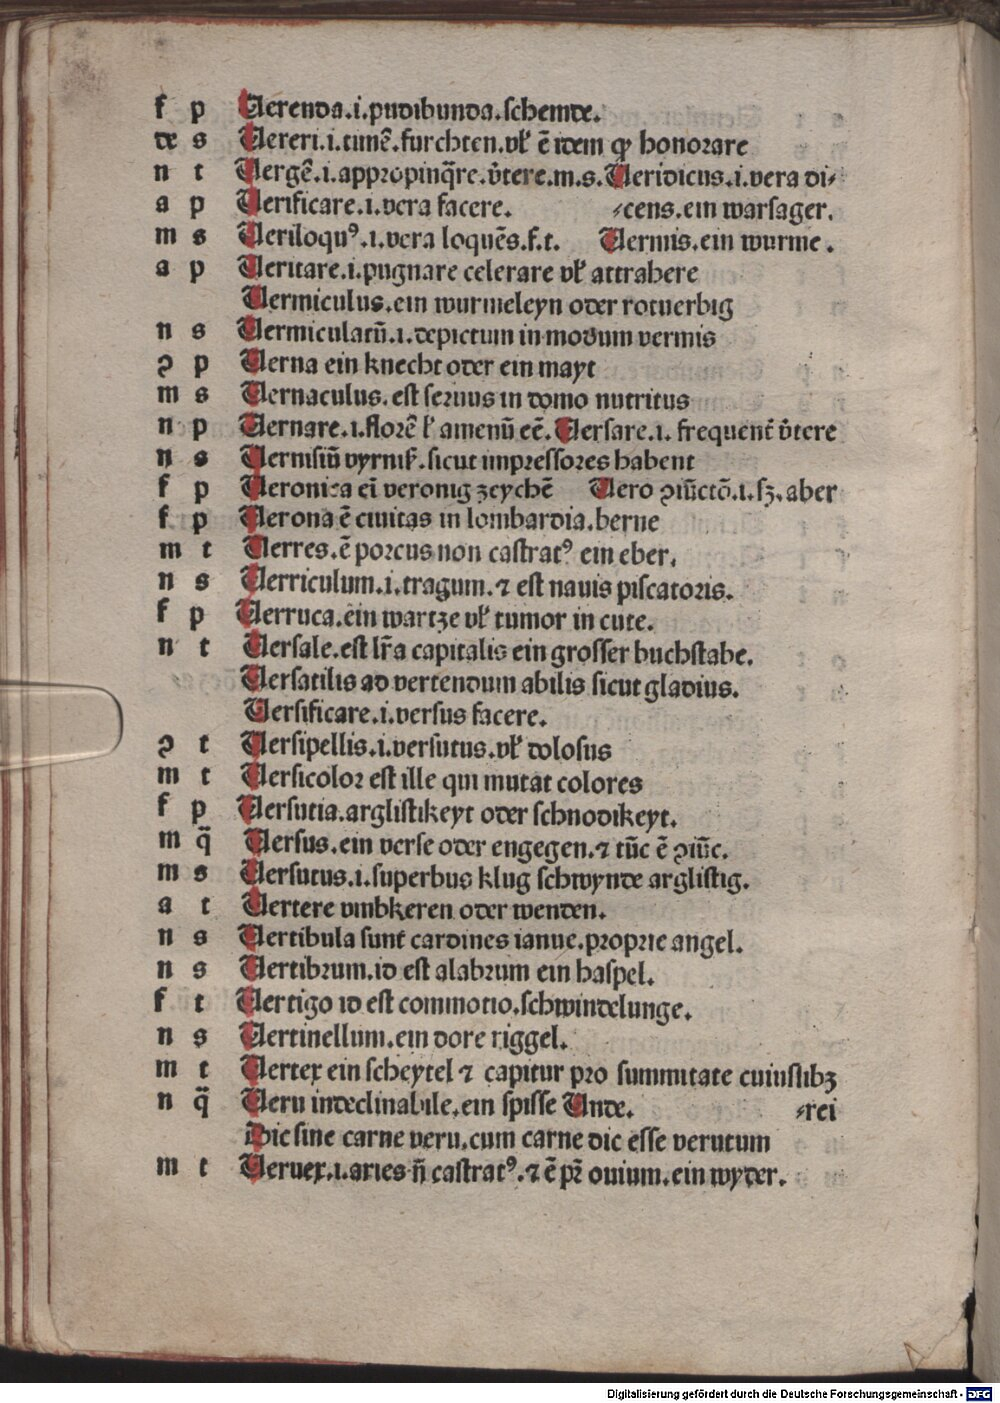 f p Uerenda.i.pudibunda.schemde.
de s Uereri.i.timē.furchten.vł ē idem ꝙ honorare
n t Uergē.i.appropinq̄re.v̄tere.m.s.Ueridicus.i.vera di⸗
a p Uerificare.i.vera facere. ⸗cens.ein warsager.
m s Ueriloquꝰ.i.vera loquēs.f.t. Uermis.ein wurme.
a p Ueritare.i.pugnare celerare vł attrahere
Uermiculus.ein wurmeleyn oder rotuerbig
n s Uermiculatū.i.depictum in modum vermis
ꝯ p Uerna ein knecht oder ein mayt
m s Uernaculus.est seruus in domo nutritus
n p Uernare.i.florē ł amenū eē.Uersare.i.frequent̄ v̄tere
n s Uernisiū vyrniß.sicut impressores habent
f p Ueronica eī veronig zeychē Uero ꝯiūctō.i.sꝫ.aber
f p Uerona ē ciuitas in lombardia.berne
m t Uerres.ē porcus non castratꝰ ein eber.
n s Uerriculum.i.tragum.⁊ est nauis piscatoris.
f p Uerruca.ein wartze vł tumor in cute.
n t Uersale.est lr̄a capitalis ein grosser buchstabe.
Uersatilis ad vertendum abilis sicut gladius.
Uersificare.i.versus facere.
ꝯ t Uersipellis.i.versutus.vł dolosus
m t Uersicolor est ille qui mutat colores
f p Uersutia.arglistikeyt oder schnodikeyt.
m q̄ Uersus.ein verse oder engegen.⁊ tūc ē ꝯiūc.
m s Uersutus.i.superbus klug schwynde arglistig.
a t Uertere vmbkeren oder wenden.
n s Uertibula sunt cardines ianue.proprie angel.
n s Uertibrum.id est alabrum ein haspel.
f t Uertigo id est commotio.schwindelunge.
n s Uertinellum.ein dore riggel.
m t Uertex ein scheytel ⁊ capitur pro summitate cuiuslibꝫ
n q̄ Ueru indeclinabile.ein spisse Unde. ⸗rei
Dic sine carne veru.cum carne dic esse verutum
m t Ueruex.i.aries n̄ castratꝰ.⁊ ē pr̄ ouium.ein wyder.
Digitalisierung gefördert durch die Deutsche Forschungsgemeinschaft - DFG